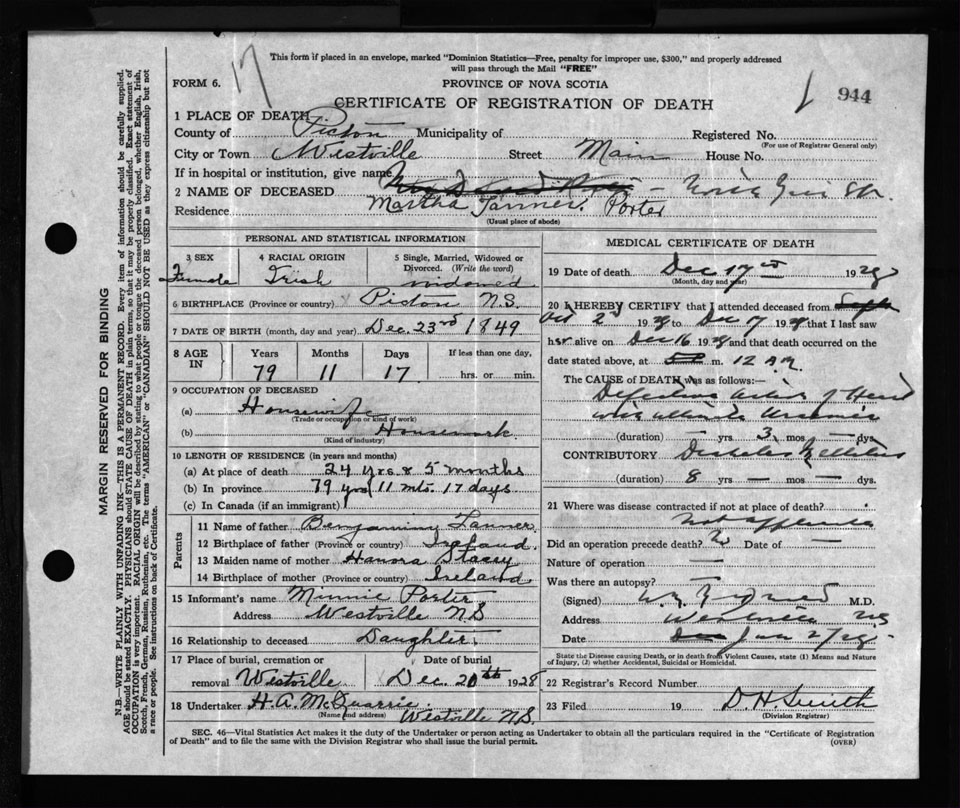 This form if placed in an envelope, marked "Dominion Statistics—Free, penalty for improper use, $300," and properly addressed
will pass through the Mail "FREE"
17
FORM 6.
PROVINCE OF NOVA SCOTIA
944
CERTIFICATE OF REGISTRATION OF DEATH
1 PLACE OF DEATH
County of Pictou Municipality of Registered No.
(For use of Registrar General only)
City or Town Westville Street Main House No.
If in hospital or institution, give name
2 NAME OF DECEASED Martha Tanner Porter
Residence
(Usual place of abode)
PERSONAL AND STATISTICAL INFORMATION
3 SEX Female
4 RACIAL ORIGIN Irish
5 Single, Married, Widowed or Divorced. (Write the word) widowed
6 BIRTHPLACE (Province or country) Pictou N.S.
7 DATE OF BIRTH (month, day and year) Dec. 23rd 1849
8 AGE IN Years Months Days If less than one day,
79 11 17 hrs. or min.
9 OCCUPATION OF DECEASED
(a) Housewife
(Trade or occupation or kind of work)
(b) Housework
(Kind of industry)
10 LENGTH OF RESIDENCE (in years and months)
(a) At place of death 24 yrs & 5 months
(b) In province 79 yrs 11 mts. 17 days
(c) In Canada (if an immigrant)
Parents
11 Name of father Benjaminy Tanner
12 Birthplace of father (Province or country) Ireland
13 Maiden name of mother Hanora Stacey
14 Birthplace of mother (Province or country) Ireland
15 Informant's name Minnie Porter
Address Westville N.S
16 Relationship to deceased Daughter
17 Place of burial, cremation or removal Westville
Date of burial Dec. 20th 1928
18 Undertaker H.A. McQuarrie
(Name and address) Westville N.S.
MEDICAL CERTIFICATE OF DEATH
19 Date of death Dec 17 1928
(Month, day and year)
20 I HEREBY CERTIFY that I attended deceased from Sept
Oct 2 1928 to Dec 17 1928 that I last saw
her alive on Dec 16 1928 and that death occurred on the
date stated above, at m. 12 A.M.
The CAUSE of DEATH was as follows:—
Defective action of Heart
(duration) — yrs 3 mos — dys.
CONTRIBUTORY Diabetes Mellitus
(duration) 8 yrs — mos — dys.
21 Where was disease contracted if not at place of death?
Did an operation precede death? Date of —
Nature of operation —
Was there an autopsy? —
(Signed) M.D.
Address Westville NS
Date Jan 2/29
State the Disease causing Death, or in death from Violent Causes, state (1) Means and Nature
of Injury, (2) whether Accidental, Suicidal or Homicidal.
22 Registrar's Record Number
23 Filed 19 D. H. Smith
(Division Registrar)
SEC. 46—Vital Statistics Act makes it the duty of the Undertaker or person acting as Undertaker to obtain all the particulars required in the "Certificate of Registration
of Death" and to file the same with the Division Registrar who shall issue the burial permit.
(OVER)
MARGIN RESERVED FOR BINDING
N.B.—WRITE PLAINLY WITH UNFADING INK—THIS IS A PERMANENT RECORD. Every item of information should be carefully supplied.
AGE should be stated EXACTLY. PHYSICIANS should STATE CAUSE OF DEATH in plain terms, so that it may be properly classified. Exact statement of
OCCUPATION is very important. RACIAL ORIGIN will be described by stating to what people or tongue the deceased person belonged, whether English, Irish,
Scotch, French, German, Russian, Ruthenian, etc. The terms "AMERICAN" or "CANADIAN" SHOULD NOT BE USED as they express citizenship but not
a race or people. See instructions on back of Certificate.